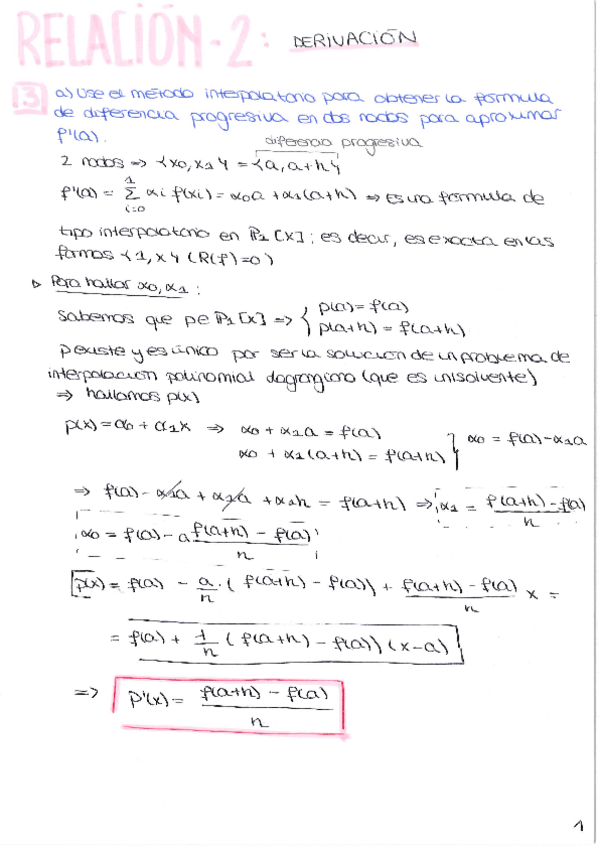 RELACIÓN-2: DERIVACIÓN
3 a) Use el método interpolatorio para obtener la fórmula
de diferencia progresiva en dos nodos para aproximar
f'(a).
diferencia progresiva
2 nodos => {x0, x1} = {a, a+h}
f'(a) = Σ_{i=0}^{1} αi f(xi) = α0a + α1(a+h) => Es una fórmula de
tipo interpolatorio en P1[x]; es decir, es exacta en las
formas {1, x} (R(f)=0)
▷ Para hallar α0, α1:
Sabemos que p∈P1[x] => { p(a) = f(a)
p(a+h) = f(a+h)
p existe y es único por ser la solución de un problema de
interpolación polinomial lagrangiano (que es unisolvente)
=> hallamos p(x)
p(x) = α0 + α1x => α0 + α1a = f(a)
α0 + α1(a+h) = f(a+h) } α0 = f(a) - α1a
=> f(a) - α1a + α1a + α1h = f(a+h) => α1 = (f(a+h) - f(a))/h
α0 = f(a) - a (f(a+h) - f(a))/h
p(x) = f(a) - a/h · (f(a+h) - f(a)) + (f(a+h) - f(a))/h x =
= f(a) + 1/h (f(a+h) - f(a)) (x-a)
=> p'(x) = (f(a+h) - f(a))/h
1